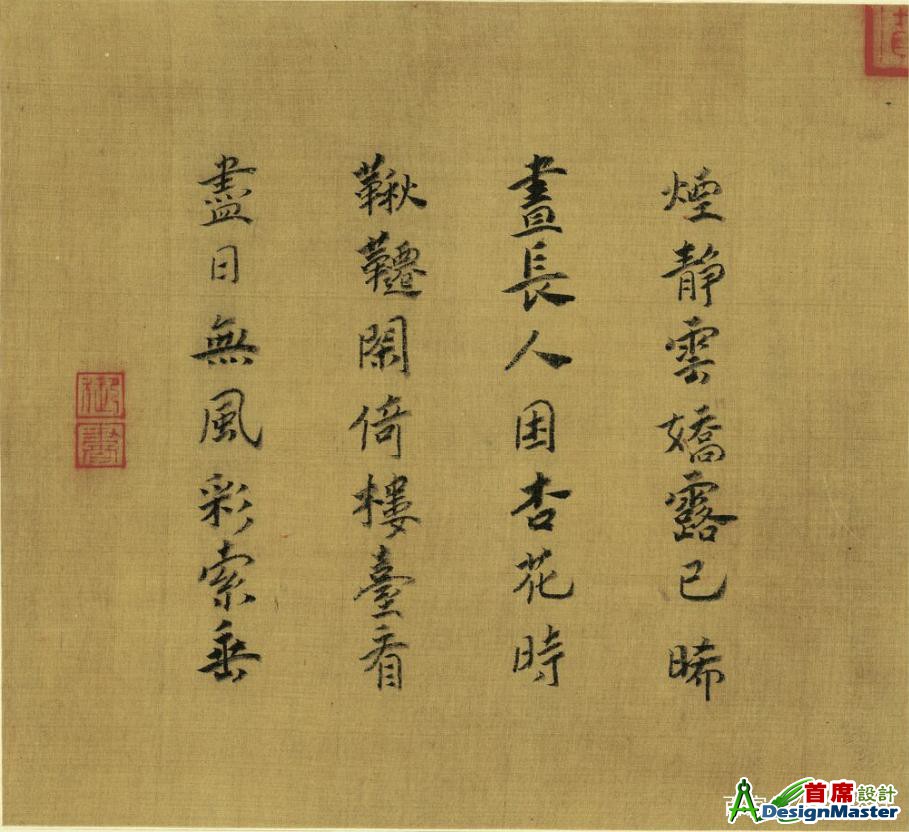 煙靜雲嬌露已晞
晝長人困杏花時
鞦韆閑倚樓臺看
盡日無風彩索垂
御書
首席設計
ADesignMaster